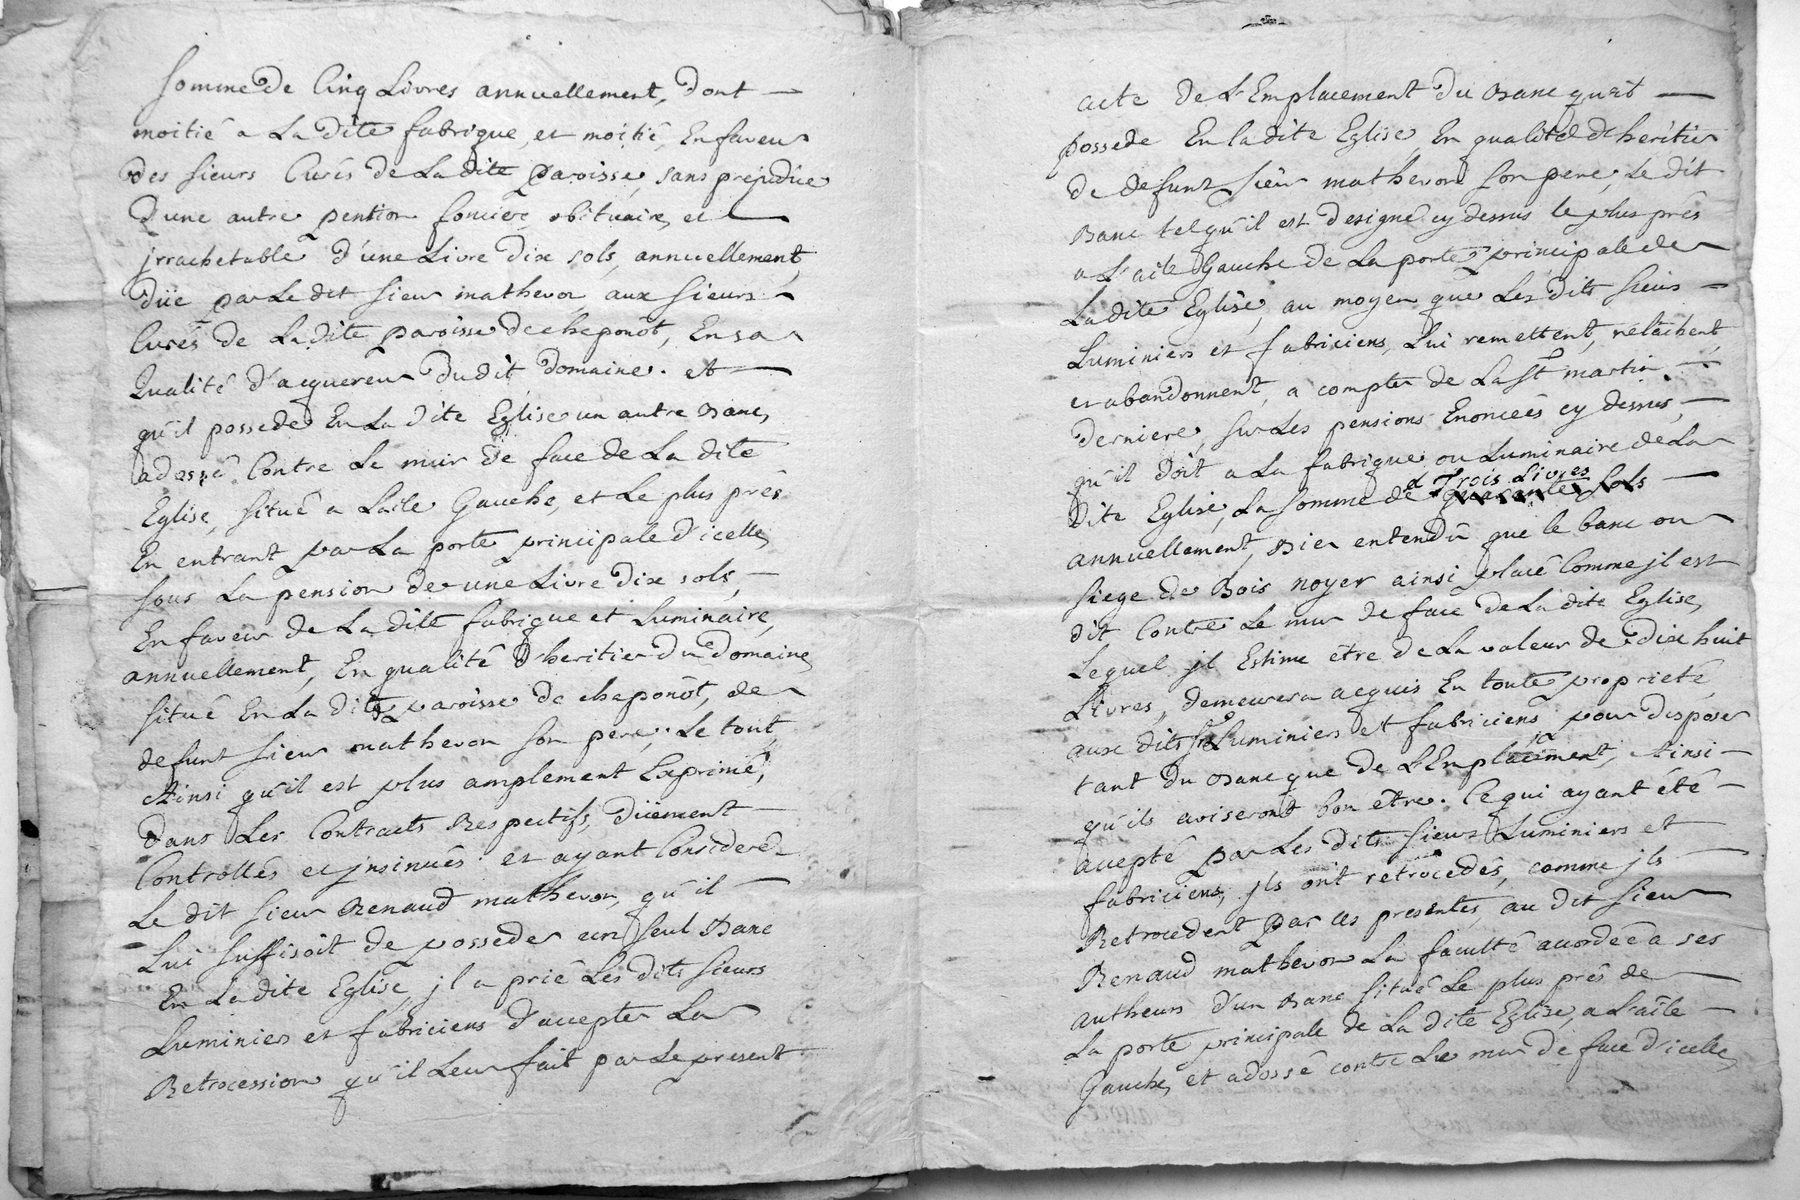 somme de Cinq Livres annuellement, dont —
moitié a La dite fabrique, et moitié, En faveur
des sieurs Curés de La dite paroisse, sans prejudice
D'une autre pention fonciere, obituaire, et —
jrrachetable d'une Livre Dix sols, annuellement,
düe par Le dit sieur mathevon aux sieurs
Curés de La dite paroisse de cheponôt, En sa
Qualité d'acquereur Dudit Domaine. et —
qu'il possede En La dite Eglise un autre Banc,
adossé Contre Le mur de face de La dite
Eglise, situé a Laile Gauche, et Le plus prés
En entrant par La porte principale d'icelle,
sous La pension de une Livre Dix sols, —
En faveur de La dite fabrique et Luminaire,
annuellement, En qualité d'heritier Du Domaine,
situé En La dite paroisse de cheponôt, de
defunt sieur mathevon son pere, Le tout
Ainsi qu'il est plus amplement Exprimé,
dans Les Contracts Respectifs, düement —
Controllés et jnsinués: et ayant Consideré
Le dit sieur Renaud mathevon, qu'il —
Lui suffisoit de posseder un seul Banc
En La dite Eglise, jl a prié Les dits sieurs
Luminiers et fabriciens d'accepter La
Retrocession qu'il Leur fait par Le present
acte De L'Emplacement Du Banc qu'il —
possede En la dite Eglise, En qualité d'heritier
de defunt sieur mathevon son pere, Le dit
Banc tel qu'il est designé cy dessus le plus prés
a L'aile Gauche de La porte principale de
La dite Eglise, au moyen que Les dits sieurs —
Luminiers et fabriciens, Lui remettent, relâchent,
et abandonnent, a compter de La St martin —
derniere, sur Les pensions Enoncées cy dessus, —
qu'il doit a La fabrique ou Luminaire de La
d Trois Livres
Dite Eglise, La somme de quarante sols —
annuellement, Bien entendû que le banc ou
siege de Bois noyer ainsi placé Comme jl est
dit Contre Le mur de face de La dite Eglise,
Lequel jl Estime être de La valeur de Dix huit
Livres, demeurera acquis En toute proprieté
aux dits Srs Luminiers et fabriciens pour disposer
tant Du Banc que de L'Emplacement, Ainsi —
qu'ils aviseront bon être. Ce qui ayant été —
accepté par Les dits sieurs Luminiers et
fabriciens, jls ont retrocedés, comme jls —
Retrocedent par ces presentes, au dit sieur
Renaud mathevon La faculté accordée a ses
autheurs d'un Banc situé Le plus prés de
La porte principale de La dite Eglise, a L'aile —
Gauche, et adossé contre Le mur de face d'icelle,